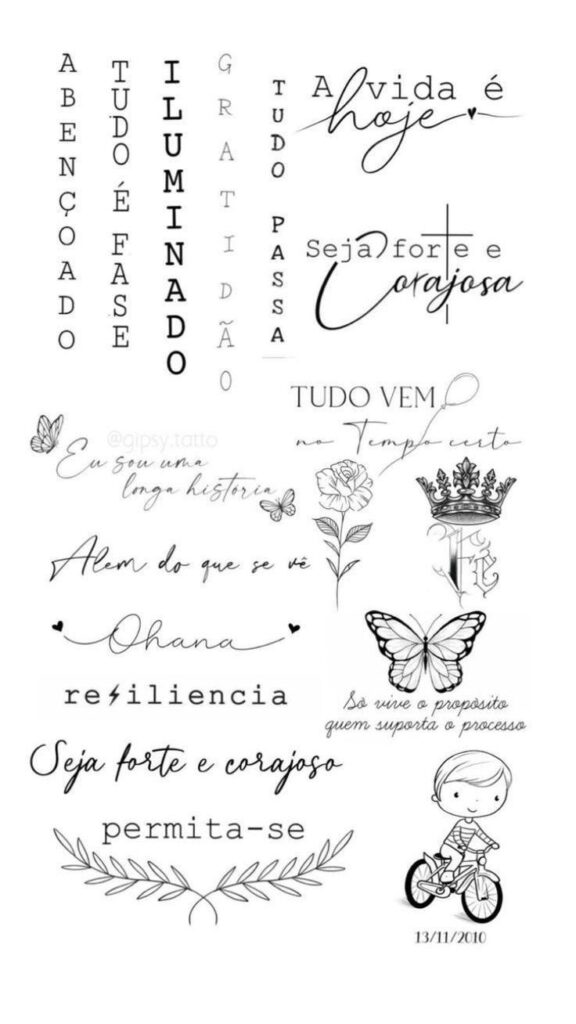 ABENÇOADO
TUDO É FASE
ILUMINADO
GRATIDÃO
TUDO PASSA
A vida é
hoje
Seja forte e
Corajosa
TUDO VEM
no Tempo certo
@gipsy.tatto
Eu sou uma
longa história
Fé
Alem do que se vê
Ohana
resiliencia
Só vive o propósito
quem suporta o processo
Seja forte e corajoso
permita-se
13/11/2010